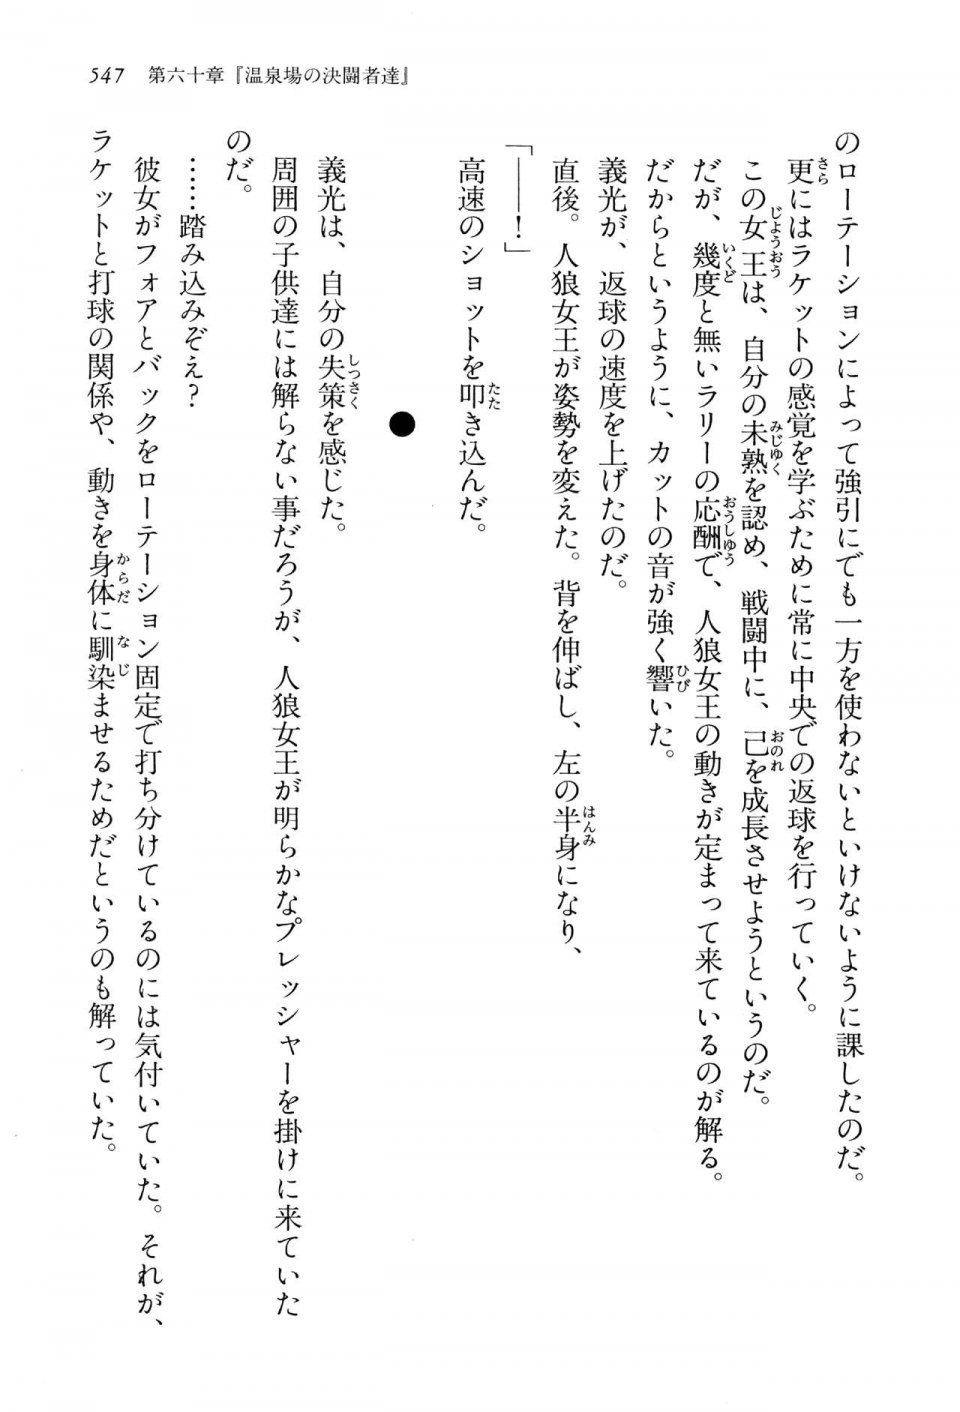 547　第六十章『温泉場の決闘者達』
のローテーションによって強引にでも一方を使わないといけないように課したのだ。
更にはラケットの感覚を学ぶために常に中央での返球を行っていく。
この女王は、自分の未熟を認め、戦闘中に、己を成長させようというのだ。
だが、幾度と無いラリーの応酬で、人狼女王の動きが定まって来ているのが解る。
だからというように、カットの音が強く響いた。
義光が、返球の速度を上げたのだ。
直後。人狼女王が姿勢を変えた。背を伸ばし、左の半身になり、
「――！」
高速のショットを叩き込んだ。
●
義光は、自分の失策を感じた。
周囲の子供達には解らない事だろうが、人狼女王が明らかなプレッシャーを掛けに来ていた
のだ。
……踏み込みぞえ？
彼女がフォアとバックをローテーション固定で打ち分けているのには気付いていた。それが、
ラケットと打球の関係や、動きを身体に馴染ませるためだというのも解っていた。